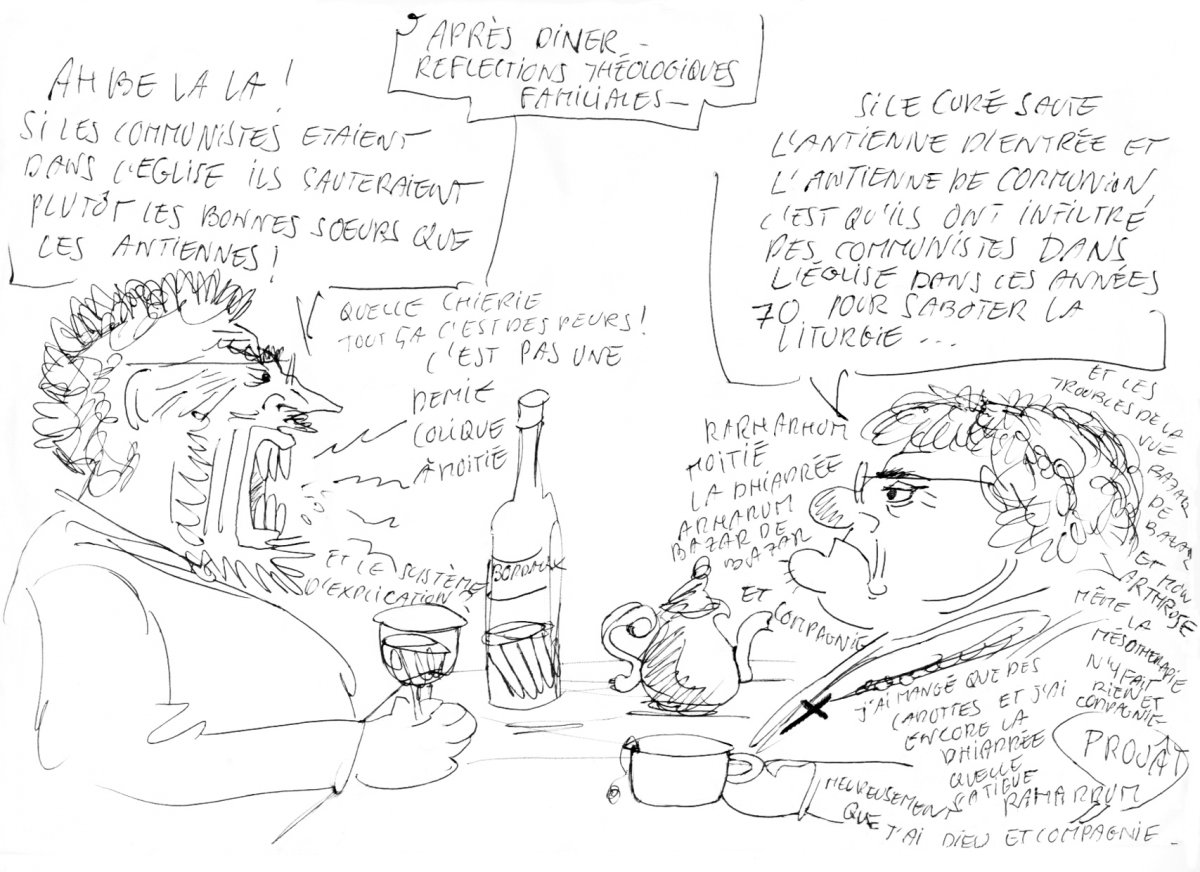 APRÈS DINER -
REFLECTIONS THÉOLOGIQUES
FAMILIALES -
AH BE LA LA !
SI LES COMMUNISTES ETAIENT
DANS L'EGLISE ILS SAUTERAIENT
PLUTÔT LES BONNES SOEURS QUE
LES ANTIENNES !
SI LE CURÉ SAUTE
L'ANTIENNE D'ENTRÉE ET
L'ANTIENNE DE COMMUNION,
C'EST QU'ILS ONT INFILTRÉ
DES COMMUNISTES DANS
L'ÉGLISE DANS LES ANNÉES
70 POUR SABOTER LA
LITURGIE ...
QUELLE CHIERIE
TOUT ÇA C'EST DES PEURS !
C'EST PAS UNE
DEMIE
COLIQUE
À MOITIÉ
ET LE SUSTÈME
D'EXPLICATION
BORDEAUX
RARMARHUM
MOITIÉ
LA DHIARRÉE
ARMARUM
BAZAR DE
BAZAR
ET
COMPAGNIE
ET LES
TROUBLES DE LA
VUE
BAZAR
DE
BAZAR
ET MON
ARTHROSE
MÊME LA
MÉSOTHÉRAPIE
N'Y FAIT
RIEN ET
COMPAGNIE
J'AI MANGÉ QUE DES
CAROTTES ET J'AI
ENCORE LA
DHIARRÉE
QUELLE
FATIGUE
RAMARRUM
PROUÂT
HEUREUSEMENT
QUE J'AI DIEU ET COMPAGNIE -